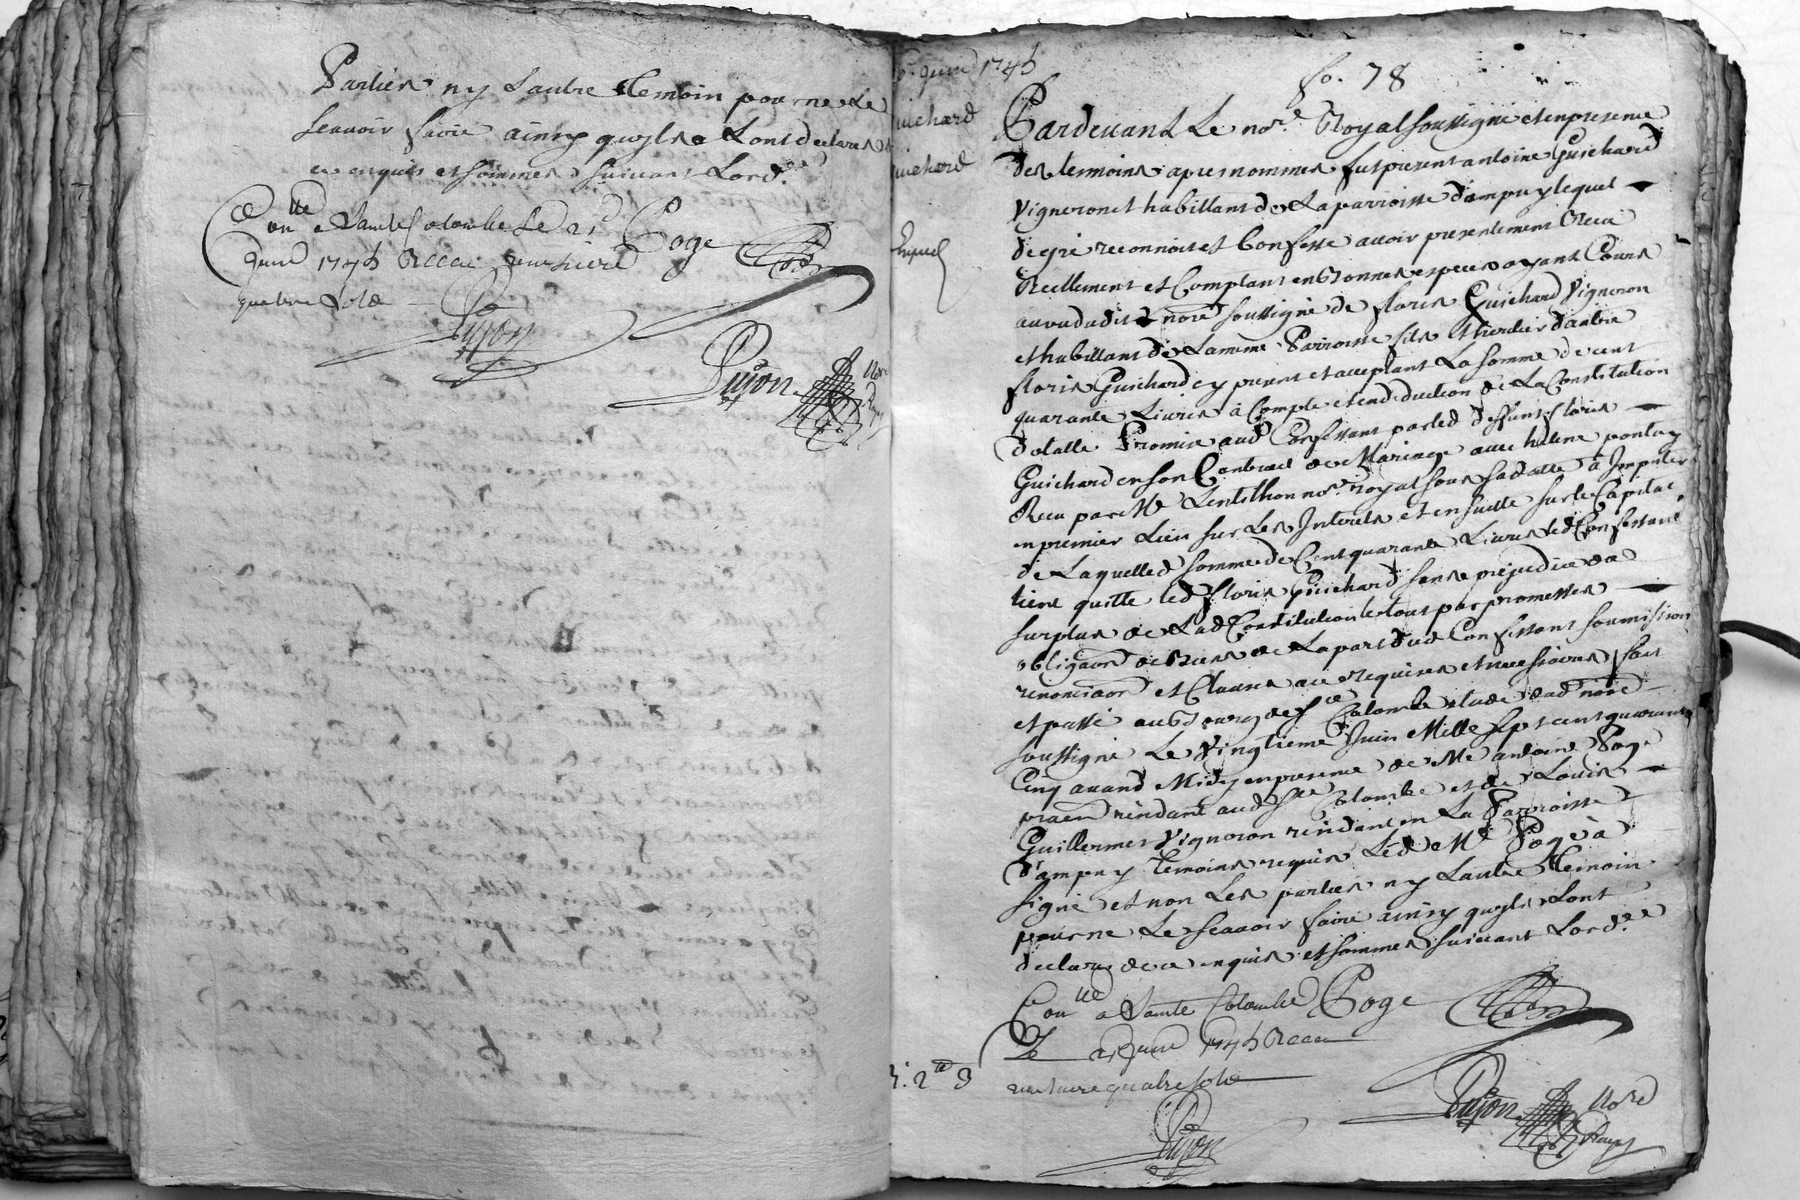 Parties ny Lautre temoin pour ne Le
scavoir faire ainsy quylz Lont declaré
enquis et sommes suivant Lord.ce
Con.lle a Sainte Colombe Le 21
juin 1745 Receu une livre
quatre sols
Poge
Pujon
Pujon Nore Royal
juin 1745
uichard
uichard
fo. 78
Pardevant Le nore. Royal soussigné et en presence
des temoins apres nommes fut present antoine Guichard
Vigneron et habittant de La parroisse dampuy lequel
de gré reconnoit et Confesse avoir presentement Receu
Reellement et Comptant en bonnes especes ayant Cours
au vu dudit nore soussigné de floris Guichard Vigneron
et habittant de La meme Parroisse fils et heritier dautre
floris Guichard cy present et acceptant La somme de cent
quarante Livres à Compte et en deduction de La Constitution
dotalle Promise aud Confessant par led deffunt floris
Guichard en son Contract de Mariage avec helene pontuy
Receu par Me Lentilhon nore. royal sous sa datte à Imputer
en premier Lieu sur Les Interets et en suitte sur le Capital
de Laquelle somme de Cent quarante Livres led Confessant
tient quitte led floris Guichard sans prejudice du
surplus de Lad Constitution le tout par promesses
obligaon de biens de La part dud Confessant soumission
renonciaon et Clauses a ce requises et necessaires fait
et passé au bourg de Ste Colombe etude dud nore
soussigné Le Vingtieme Juin Mille sept cent quarante
Cinq avand Midy en presence de Me antoine Poge
praen residant aud Ste Colombe et de Louis
Guillermet Vigneron residant en La Parroisse
d'ampuy temoins requis Led Me Poge à
signé et non Les parties ny Lautre temoin
pour ne Le scavoir faire ainsy quylz Lont
declaré de ce enquis et sommes suivant Lord.ce
Con.lle a Sainte Colombe Poge
Le 21 juin 1745 Receu
une livre quatre sols
Pujon
Pujon Nore Royal